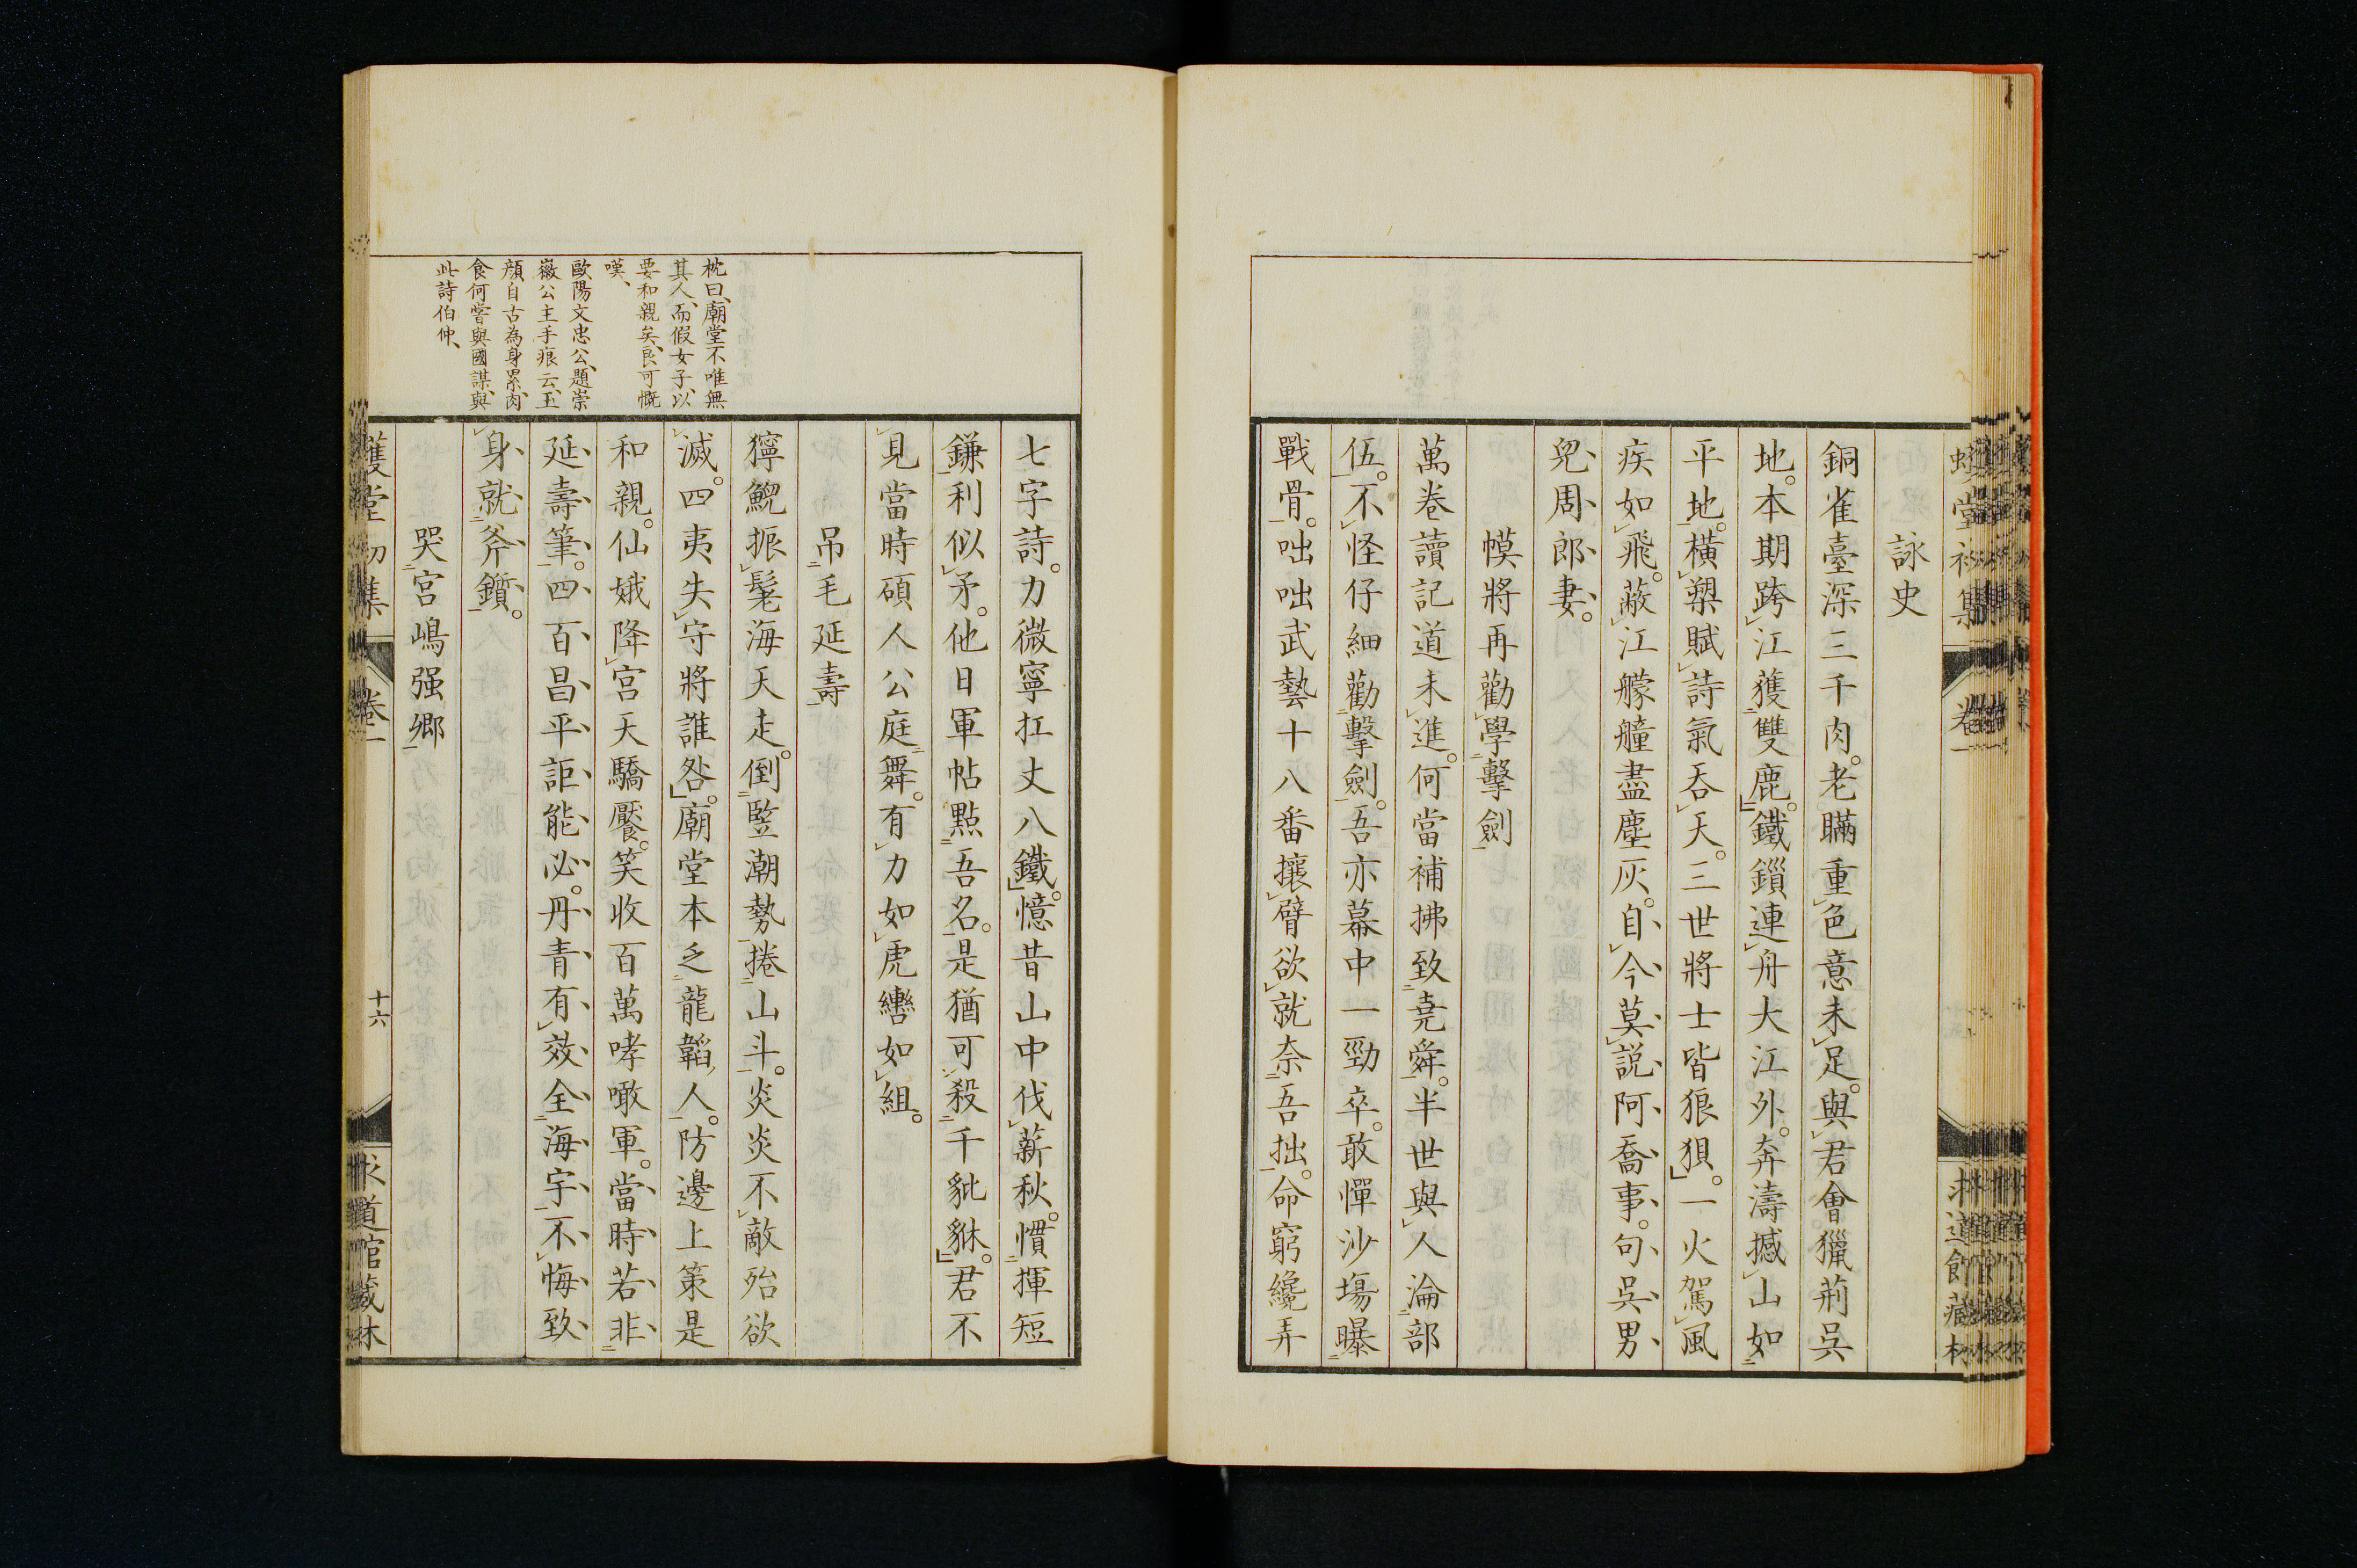 詠史
銅雀臺深三千肉。老瞞重色意未足。與君會獵荊吳
地。本期跨江獲雙鹿。鐵鎖連舟大江外。奔濤撼山如
平地。橫槊賦詩氣吞天。三世將士皆狼狽。一火駕風
疾如飛。蔽江艨艟盡塵灰。自今莫說阿喬事。句吳男
兒周郎妻。
幙將再勸學擊劍
萬卷讀記道未進。何當補拂致堯舜。半世與人淪部
伍。不怪仔細勸擊劍。吾亦幕中一勁卒。敢憚沙塲曝
戰骨。咄咄武藝十八番攘臂欲就奈吾拙。命窮纔弄
七字詩。力微寧扛丈八鐵。憶昔山中伐薪秋。慣揮短
鎌利似矛。他日軍帖點吾名。是猶可殺千豼貅。君不
見當時碩人公庭舞。有力如虎轡如組。
吊毛延壽
獰鯢振鬣海天走。倒竪潮勢捲山斗。炎炎不敵殆欲
滅。四夷失守將誰咎。廟堂本乏龍韜人。防邊上策是
和親。仙娥降宮天驕饜。笑收百萬哮噉軍。當時若非
延壽筆。四百昌平詎能必。丹青有效全海宇。不悔致
身就斧鑕。
哭宮嶋强鄉
枕曰、廟堂不唯無
其人、而假女子、以
要和親矣、良可慨
嘆、
歐陽文忠公、題崇
徽公主手痕云、玉
顏自古為身累、肉
食何嘗與國謀、與
此詩伯仲、
堂初集 卷一 十六 求道館藏